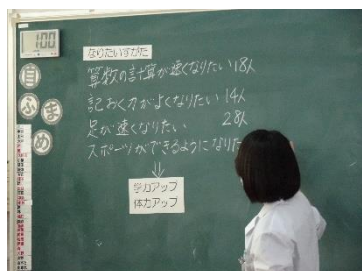 100
なりたいすがた
算数の計算が速くなりたい 18人
記おく力がよくなりたい 14人
足が速くなりたい 28人
スポーツができるようになりた
自
ふ
ま
め
学力アップ
体力アップ